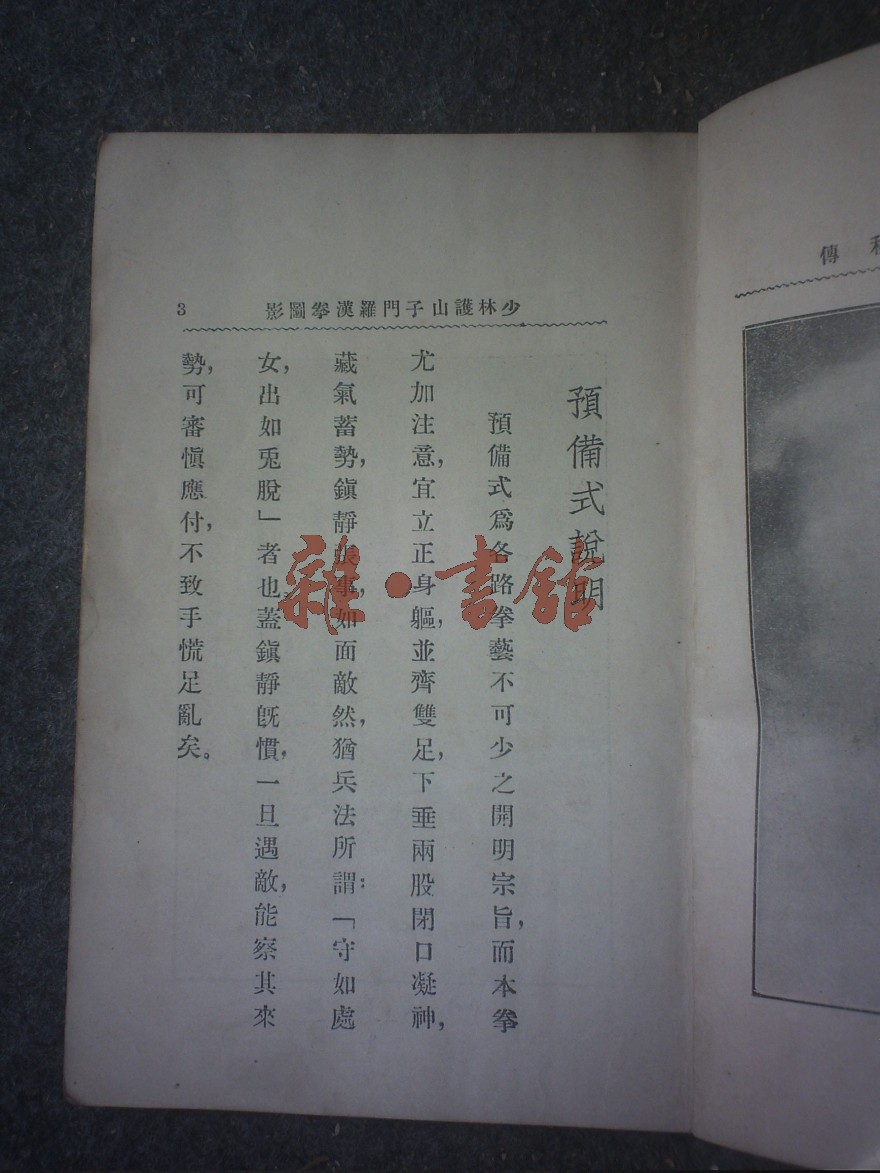 少林護山子門羅漢拳圖影
3
預備式說明
預備式爲各路拳藝不可少之開明宗旨，而本拳
尤加注意，宜立正身軀，並齊雙足，下垂兩股閉口凝神，
藏氣蓄勢，鎮靜事，如面敵然，猶兵法所謂：「守如處
女，出如兎脫」者也，蓋鎮靜旣慣，一旦遇敵，能察其來
勢，可審愼應付，不致手慌足亂矣。
雜·書館
傳